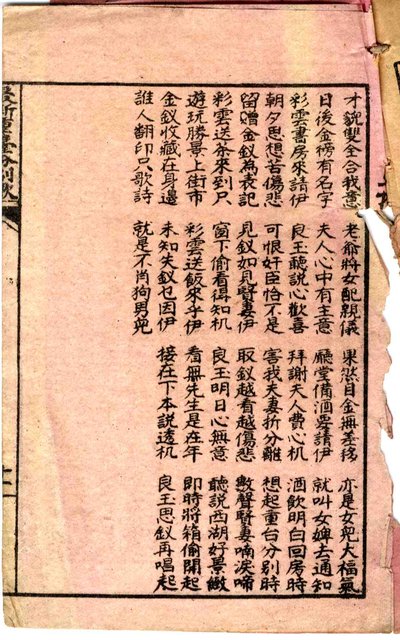 才貌雙全合我意 老爺將女配親儀 果然目金無差移 亦是女兒大福氣
日後金榜有名字 夫人心中有主意 廳堂備酒要請伊 就叫女婢去通知
彩雲書房來請伊 良玉聽說心歡喜 拜謝夫人費心机 酒飲明白回房時
朝夕思想苦傷悲 可恨奸臣恰不是 害我夫妻折分離 想起重台分別時
留贈金釵為表記 見釵如見賢妻伊 取釵越看越傷悲 數聲賢妻喃淚啼
彩雲送飯來到只 窗下偷看得知机 良玉明日心無意 聽說西湖好景緻
遊玩勝景上街市 彩雲送飯來乎伊 看無先生是在年 即時將箱偷開起
金釵收藏在身邊 未知失釵乜因伊 接在下本說透机 良玉思釵再唱起
誰人翻印只歌詩 就是不肖狗男兒
最新重臺分別歌